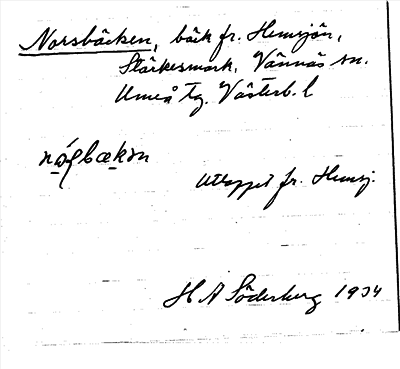 Norsbäcken, bäck fr. Hemsjön,
Stärkesmark, Vännäs sn.
Umeå tg. Västerb. l
utloppet fr. Hemsj.
H A Söderberg 1934